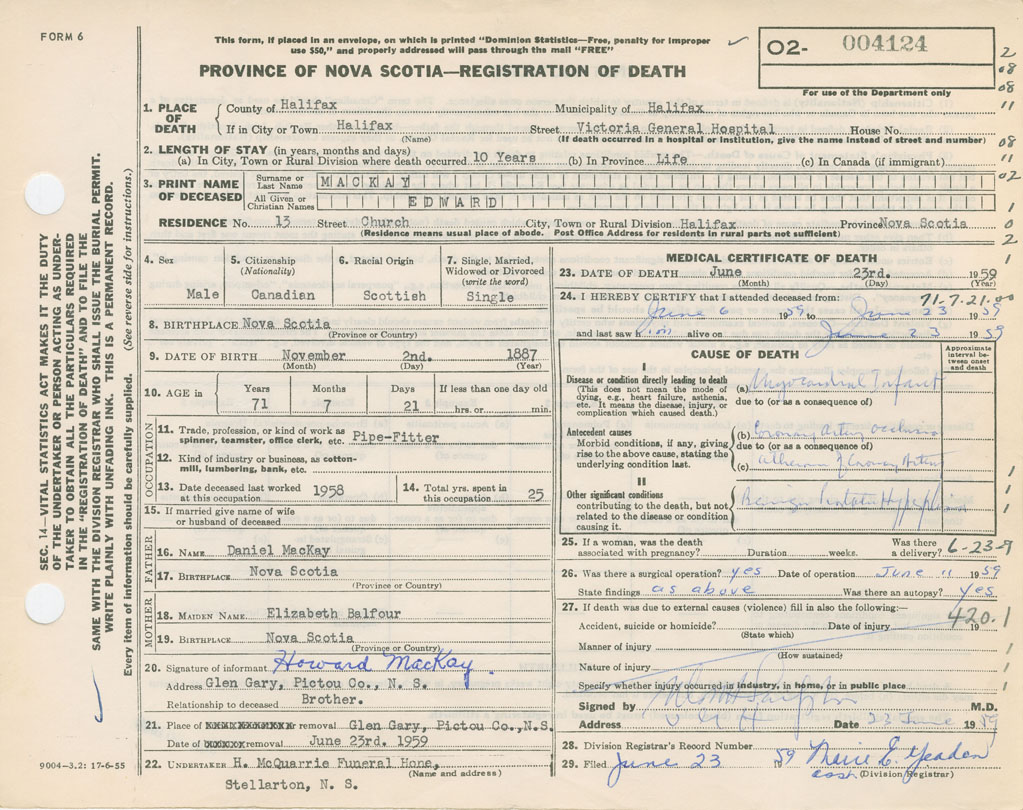 FORM 6
This form, if placed in an envelope, on which is printed "Dominion Statistics—Free, penalty for improper
use $50," and properly addressed will pass through the mail "FREE"
PROVINCE OF NOVA SCOTIA—REGISTRATION OF DEATH
O2- 004124
For use of the Department only
2
08
08
11
08
11
02
1
0
2
1
SEC. 14—VITAL STATISTICS ACT MAKES IT THE DUTY
OF THE UNDERTAKER OR PERSON ACTING AS UNDER-
TAKER TO OBTAIN ALL THE PARTICULARS REQUIRED
IN THE "REGISTRATION OF DEATH" AND TO FILE THE
SAME WITH THE DIVISION REGISTRAR WHO SHALL ISSUE THE BURIAL PERMIT.
WRITE PLAINLY WITH UNFADING INK. THIS IS A PERMANENT RECORD.
Every item of information should be carefully supplied. (See reverse side for instructions.)
1. PLACE OF DEATH
County of Halifax Municipality of Halifax
If in City or Town Halifax Street Victoria General Hospital House No.
(Name) (If death occurred in a hospital or institution, give the name instead of street and number)
2. LENGTH OF STAY (in years, months and days)
(a) In City, Town or Rural Division where death occurred 10 Years (b) In Province Life (c) In Canada (if immigrant)
3. PRINT NAME OF DECEASED
Surname or Last Name MACKAY
All Given or Christian Names EDWARD
RESIDENCE No. 13 Street Church City, Town or Rural Division Halifax Province Nova Scotia
(Residence means usual place of abode. Post Office Address for residents in rural parts not sufficient)
4. Sex
Male
5. Citizenship
(Nationality)
Canadian
6. Racial Origin
Scottish
7. Single, Married,
Widowed or Divorced
(write the word)
Single
8. BIRTHPLACE Nova Scotia
(Province or Country)
9. DATE OF BIRTH November 2nd. 1887
(Month) (Day) (Year)
10. AGE in
Years Months Days If less than one day old
71 7 21 hrs. or min.
OCCUPATION
11. Trade, profession, or kind of work as
spinner, teamster, office clerk, etc. Pipe-Fitter
12. Kind of industry or business, as cotton-
mill, lumbering, bank, etc.
13. Date deceased last worked
at this occupation 1958
14. Total yrs. spent in
this occupation 25
15. If married give name of wife
or husband of deceased
FATHER
16. NAME Daniel MacKay
17. BIRTHPLACE Nova Scotia
(Province or Country)
MOTHER
18. MAIDEN NAME Elizabeth Balfour
19. BIRTHPLACE Nova Scotia
(Province or Country)
20. Signature of informant Howard MacKay
Address Glen Gary, Pictou Co., N. S.
Relationship to deceased Brother.
21. Place of removal Glen Gary, Pictou Co., N.S.
Date of removal June 23rd. 1959
9004-3.2: 17-6-55
22. UNDERTAKER H. McQuarrie Funeral Hone,
(Name and address)
Stellarton, N. S.
MEDICAL CERTIFICATE OF DEATH
23. DATE OF DEATH June 23rd. 1959
(Month) (Day) (Year)
71.7.21.00
24. I HEREBY CERTIFY that I attended deceased from:
June 6 1959 to June 23 1959
and last saw him alive on June 23 1959
CAUSE OF DEATH
Approximate
interval be-
tween onset
and death
I
Disease or condition directly leading to death
(This does not mean the mode of
dying, e.g., heart failure, asthenia,
etc. It means the disease, injury, or
complication which caused death.)
(a) Myocardial Infarct
due to (or as a consequence of)
Antecedent causes
Morbid conditions, if any, giving
rise to the above cause, stating the
underlying condition last.
(b) Coronary Artery occlusion
due to (or as a consequence of)
(c) atheroma of Coronary Artery
II
Other significant conditions
contributing to the death, but not
related to the disease or condition
causing it.
Benign Prostatic Hyperplasia
25. If a woman, was the death
associated with pregnancy? Duration weeks.
Was there
a delivery?
6-23-9
26. Was there a surgical operation? yes Date of operation June 11 1959
State findings as above Was there an autopsy? yes
27. If death was due to external causes (violence) fill in also the following:—
420.1
Accident, suicide or homicide? Date of injury 19
(State which)
Manner of injury
(How sustained)
Nature of injury
Specify whether injury occurred in industry, in home, or in public place
Signed by M.D.
Address V G H Date 23 June 1959
28. Division Registrar's Record Number
29. Filed June 23 1959 Marie E. Yeadon
asst (Division Registrar)